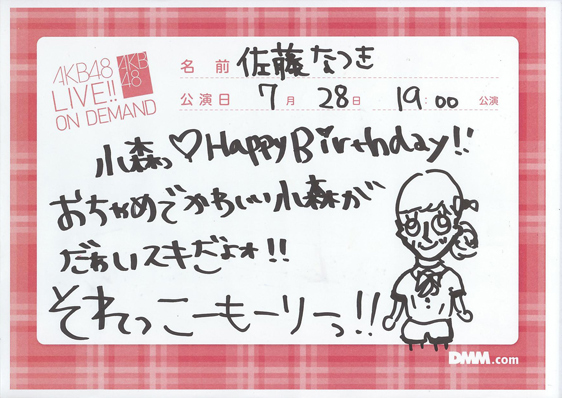 AKB48
LIVE!!
ON DEMAND
AKB
48
名前 佐藤なつき
公演日 7月 28日 19:00 公演
小森っ♡Happy Birthday!!
おちゃめでかわいい小森が
だぁいスキだよォ!!
それっこーもーりーっ!!
DMM.com